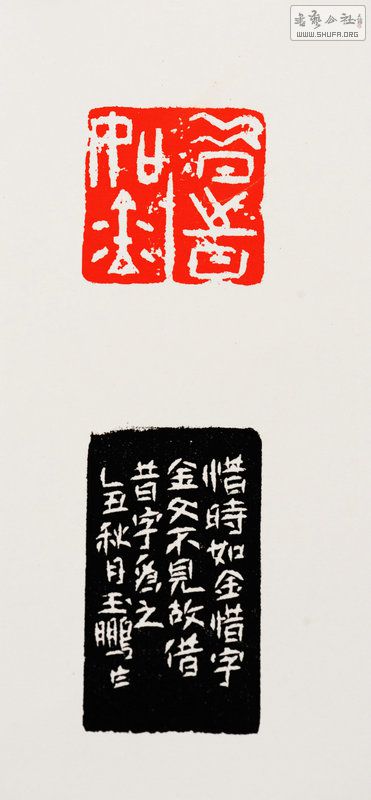 書藝公社
WWW.SHUFA.ORG
昔時
如金
惜時如金惜字
金文不見故借
昔字為之
乙丑秋月玉鵬乍